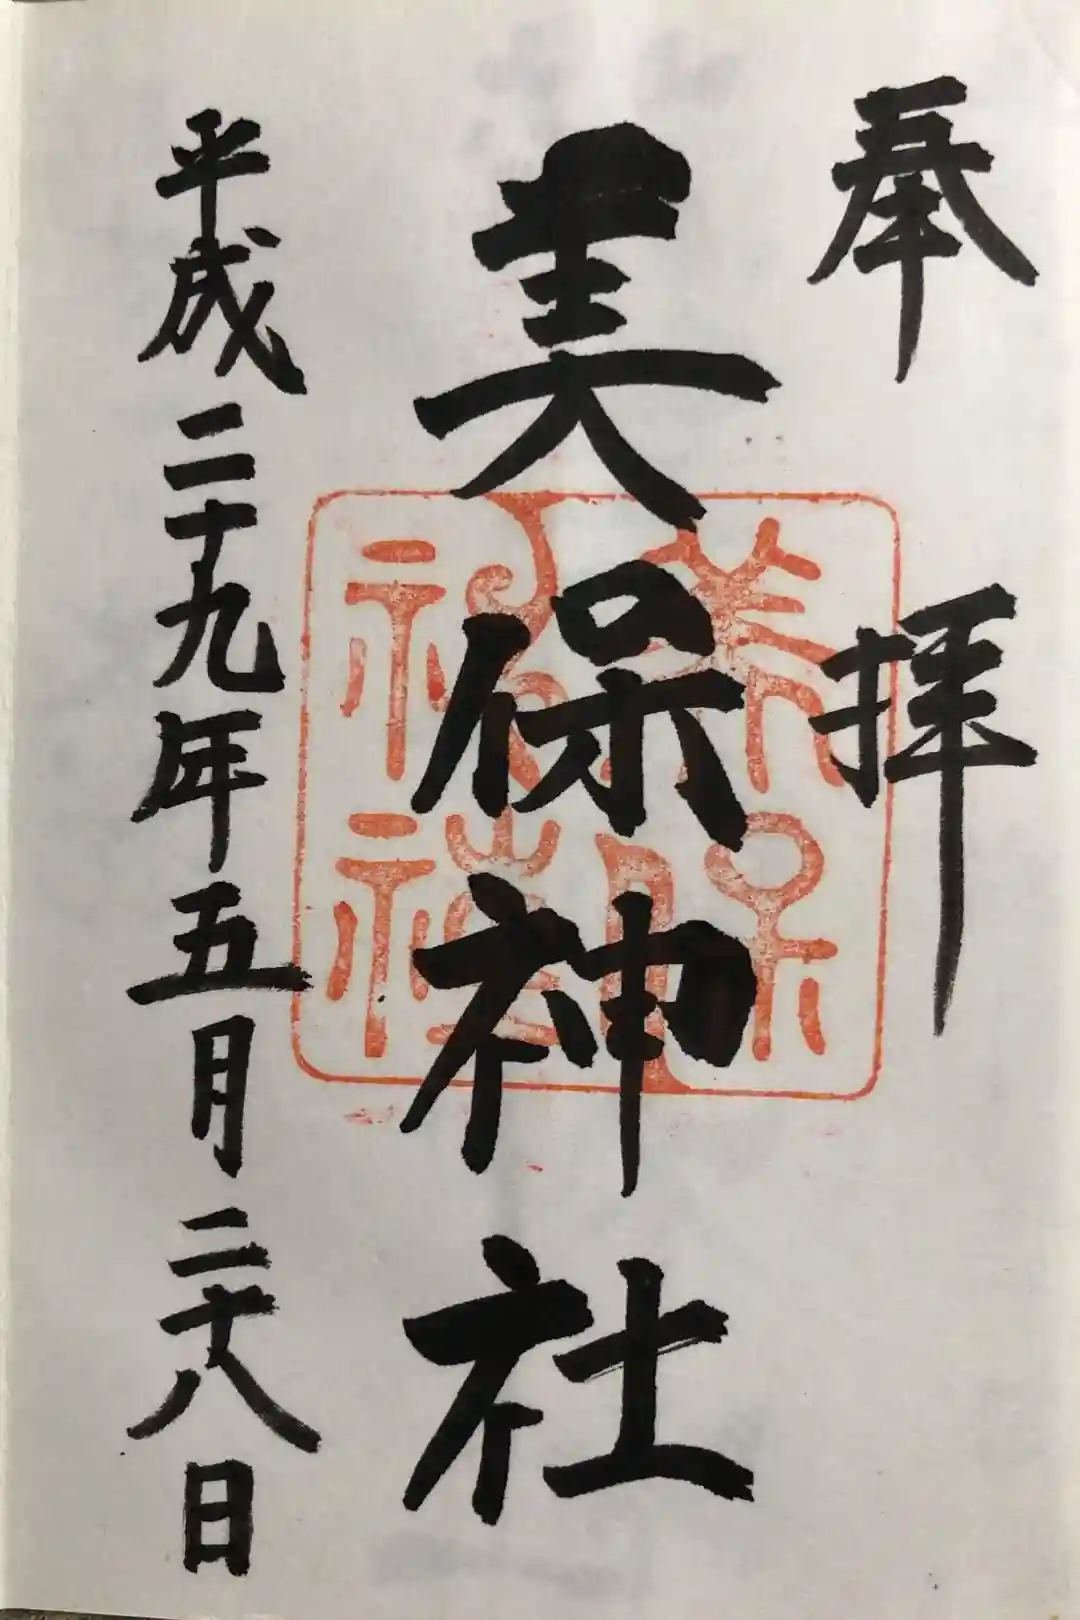 奉拝
美保神社
美保神社
平成二十九年五月二十八日